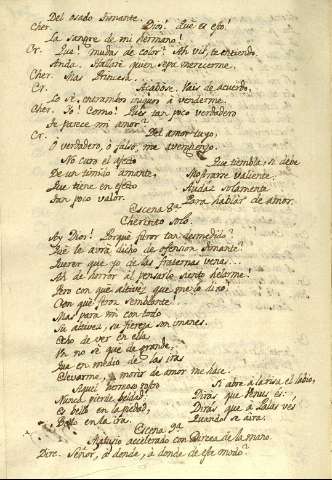 Del osado Amante.
Cher. Dios! Qué es esto!
La sangre de mi hermano!
Cr. Que! mudas de color? Ah vil, te entiendo.
Anda. Hallaré quien sepa merecerme.
Cher. Mas Princesa.
Cr. Acabóse. Vais de acuerdo,
Lo sé, entrambos
Cher. Yo! Como! Pues tan poco verdadero
Te parece mi amor?
Cr. Del amor tuyo,
O verdadero, ó falso, me avergüenzo.
No curo el afecto
De un timido amante,
Que tiene en efecto
Tan poco valor.
Que tiembla, si debe
Mostrarse valiente,
Audaz solamente
Para hablar de amor.
Escena 8ª
Cherinto solo.
Ay Dios! Porqué furor tan desmedido?
Qué le avrá dicho de ofension Amante?
Querar que yo de las fraternas venas...
Ah de horror al pensarlo siento helarme!
Pero con que altivez que me lo dixo?
Con qué feroz semblante!
Mas para mi con todo
Su altivez, su fiereza son imanes.
Echo de ver en ella
Un no sé qué de grande,
Que en medio de las iras
Elevarme, y morir de amor me hace.
Aquel hermoso rostro
Nunca pierde beldad:
Es bello en la piedad,
Bello en la ira.
Si abre á la risa el labio,
Dirás que Venus és:
Dirás que á Palas vés
Quando se aira.
Escena 9ª
acelerado con Dircea de la mano.
Dirc. Señor, á donde, á donde de este modo?